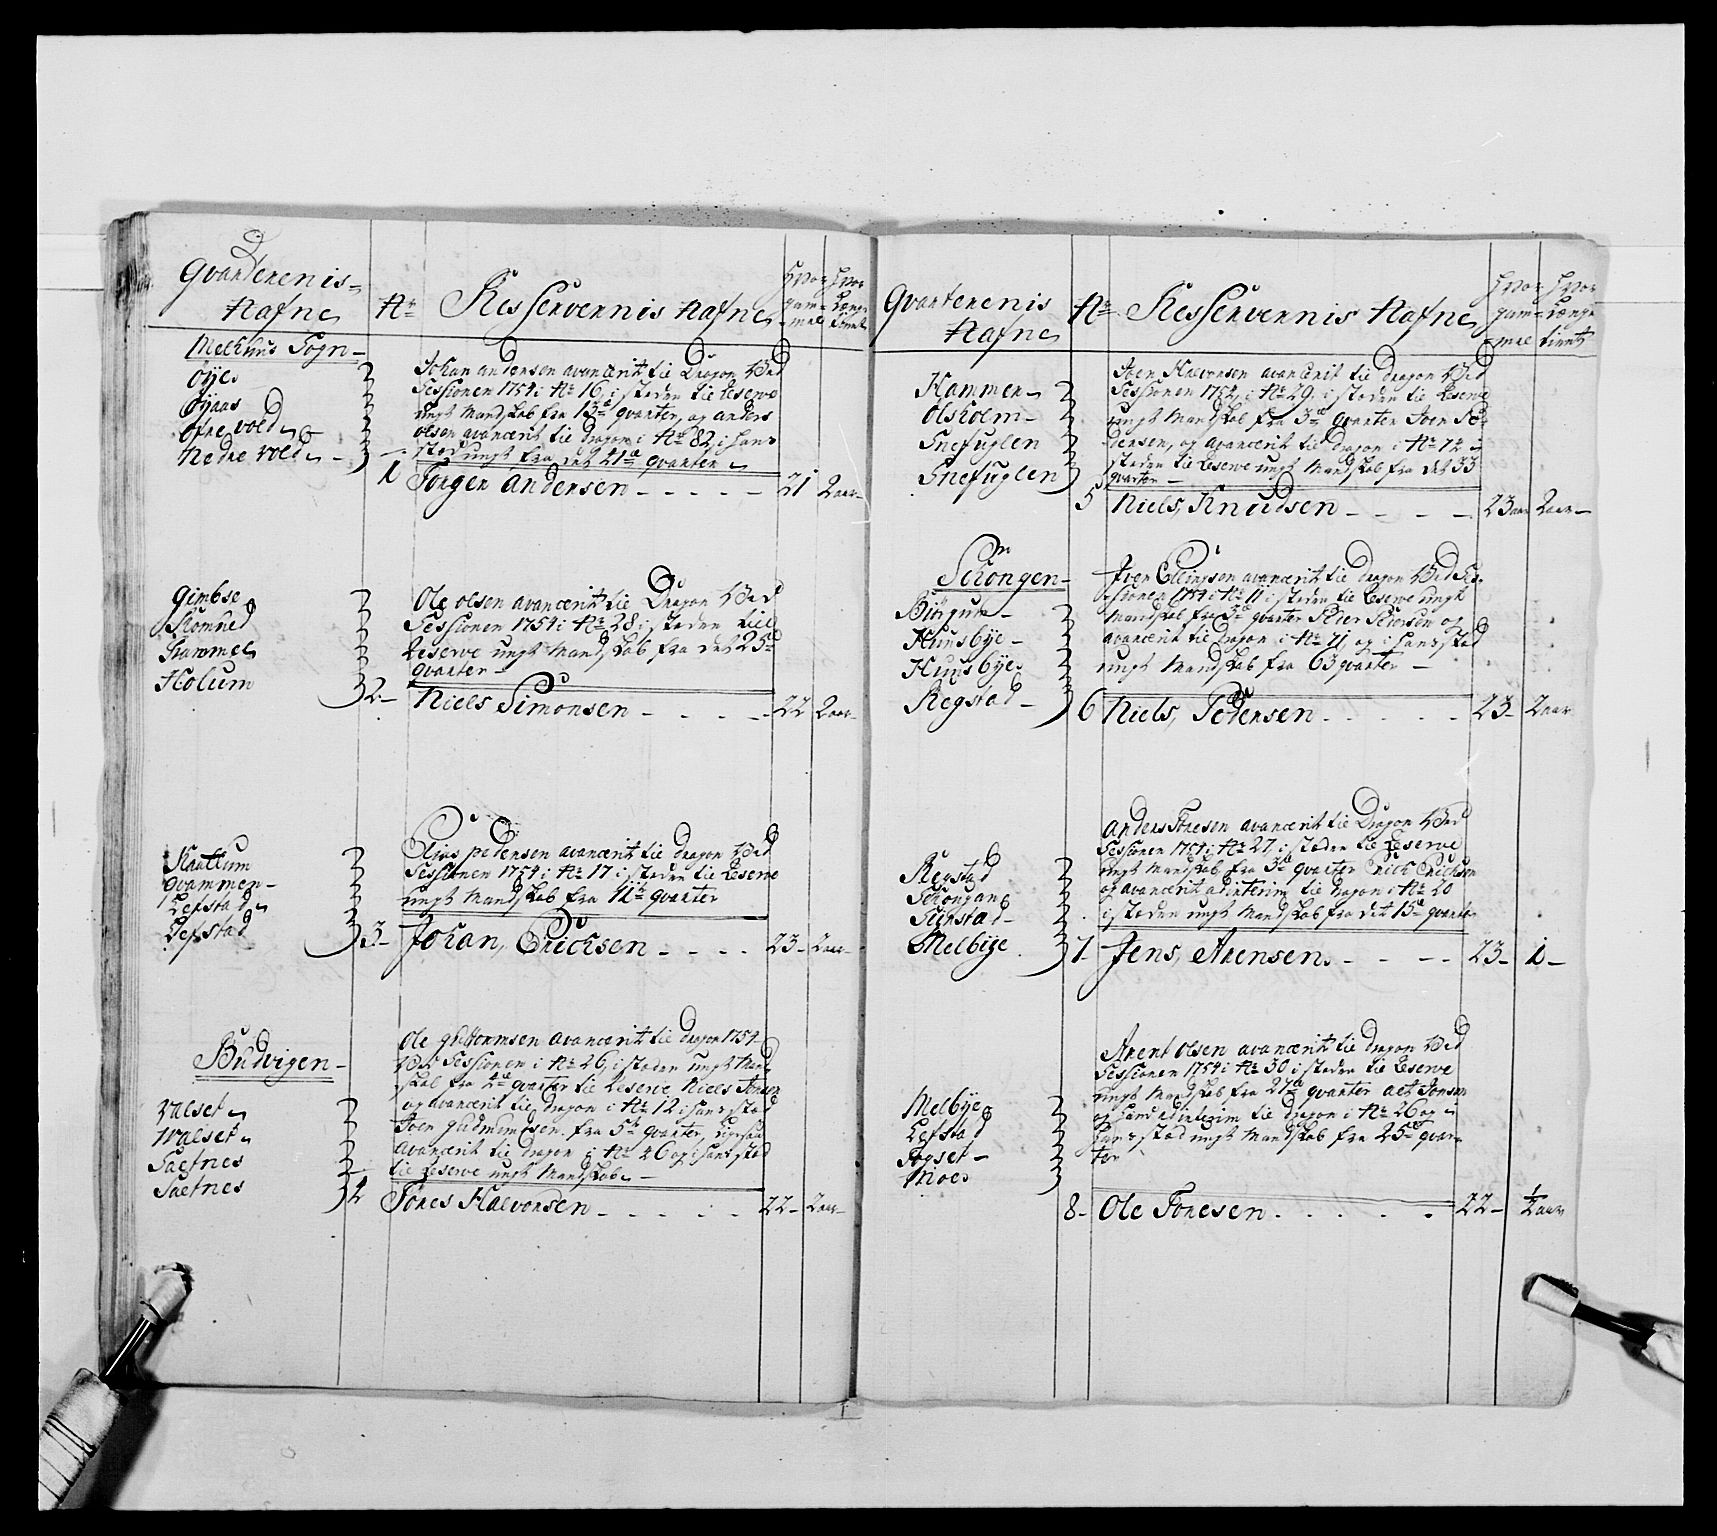 Qvarterernis
Nafne
No
Resservernis Nafne
Hvor
gam-
mel
Hvor
Længe
tient
Melhuus Sogn
Øye
Øyaas
Ofre vold
Nedre vold
Johan Andersen avancerit til Dragon Ved
Sessionen 1754 i No 16, i steden til Reserve
ungt Mandskab fra 13de qvarter, og Anders
Olsen avancerit til Dragon i No 82, i hans
sted ungt fra det 41de qvarter
1 Jørgen Andersen - - - - - 21 2 aar
Gimbse
Skomned
Hammel
Holum
Ole Olsen avancerit til Dragon Ved
Sessionen 1754 i No 28 i steden til
Reserve ungt Mandskab fra det 25de
qvarter
2 Niels Simonsen - - - - - 22 2 aar
Kaattum
Qvammen
Lefstad
Lefstad
Elias Pedersen avancerit til Dragon Ved
Sessionen 1754 i No 17 i steden til Reserve
ungt Mandskab fra 11te qvarter
3 Johan, Erichsen - - - - 23 2 aar
Budvigen
Valset
Valset
Saetnes
Saetnes
Ole Guttormsen avancerit til Dragon 1754
Ved Sessionen i No 26, i steden ungt Mand
skab fra 4de qvarter til Reserve Niels Jonsen
og avancerit til Dragon i No 12 i hans sted
Joen Gudmundsen fra 5te qvarter, ligesaa
avancerit til Dragon i No 46 og i hans sted
til Reserve ungt Mandskab
4 Jones Halvorsen - - - - - 22 2 aar
Qvarterernis
Nafne
No
Resservernis Nafne
Hvor
gam-
mel
Hvor
Længe
tient
Hammer
Olsholm
Snefuglen
Snefuglen
Joen Halvorsen avancerit til Dragon Ved
Sessionen 1754 i No 29 i steden til Reserve
ungt Mandskab fra 3de qvarter Joen Pe-
dersen, og avancerit til Dragon i No 72 i
steden til Reserve ungt Mandskab fra det 33
qvarter
5 Niels, Knudsen - - - - 23 aar 2 aar
Schongen
Biørgum
Huusbye
Huusbye
Regstad
Iver Ellingsen avancerit til Dragon Ved Se-
sionen 1754 i No 11 i steden til Reserve ungt
Mandskab fra 3de qvarter Peder Pedersen og
avancerit til Dragon i No 71, og i hans sted
ungt Mandskab fra 63 qvarter
6 Niels, Pedersen - - - - - 23 2 aar
Regstad
Schongang
Sunstad
Melbye
Anders Toresen avancerit til Dragon Ved
Sessionen 1754 i No 27, i steden til Reserve
ungt Mandskab fra 3de qvarter Erich Erichsen
og avancerit adinterim til Dragon i No 20
i steden ungt Mandskab fra det 15de qvarter
7 Jens, Arensen - - - - 23 1
Melbye
Lefstad
Fogset
Moe
Arent Olsen avancerit til Dragon Ved
Sessionen 1754 i No 30 i steden til Reserve
ungt Mandskab fra 27de qvarter Alt Jonsen
og hand adinterim til Dragon i No 26 og i
hans sted ungt Mandskab fra 25de qvar-
ter
8 Ole Tonesen - - - - - 22 1/2 aar